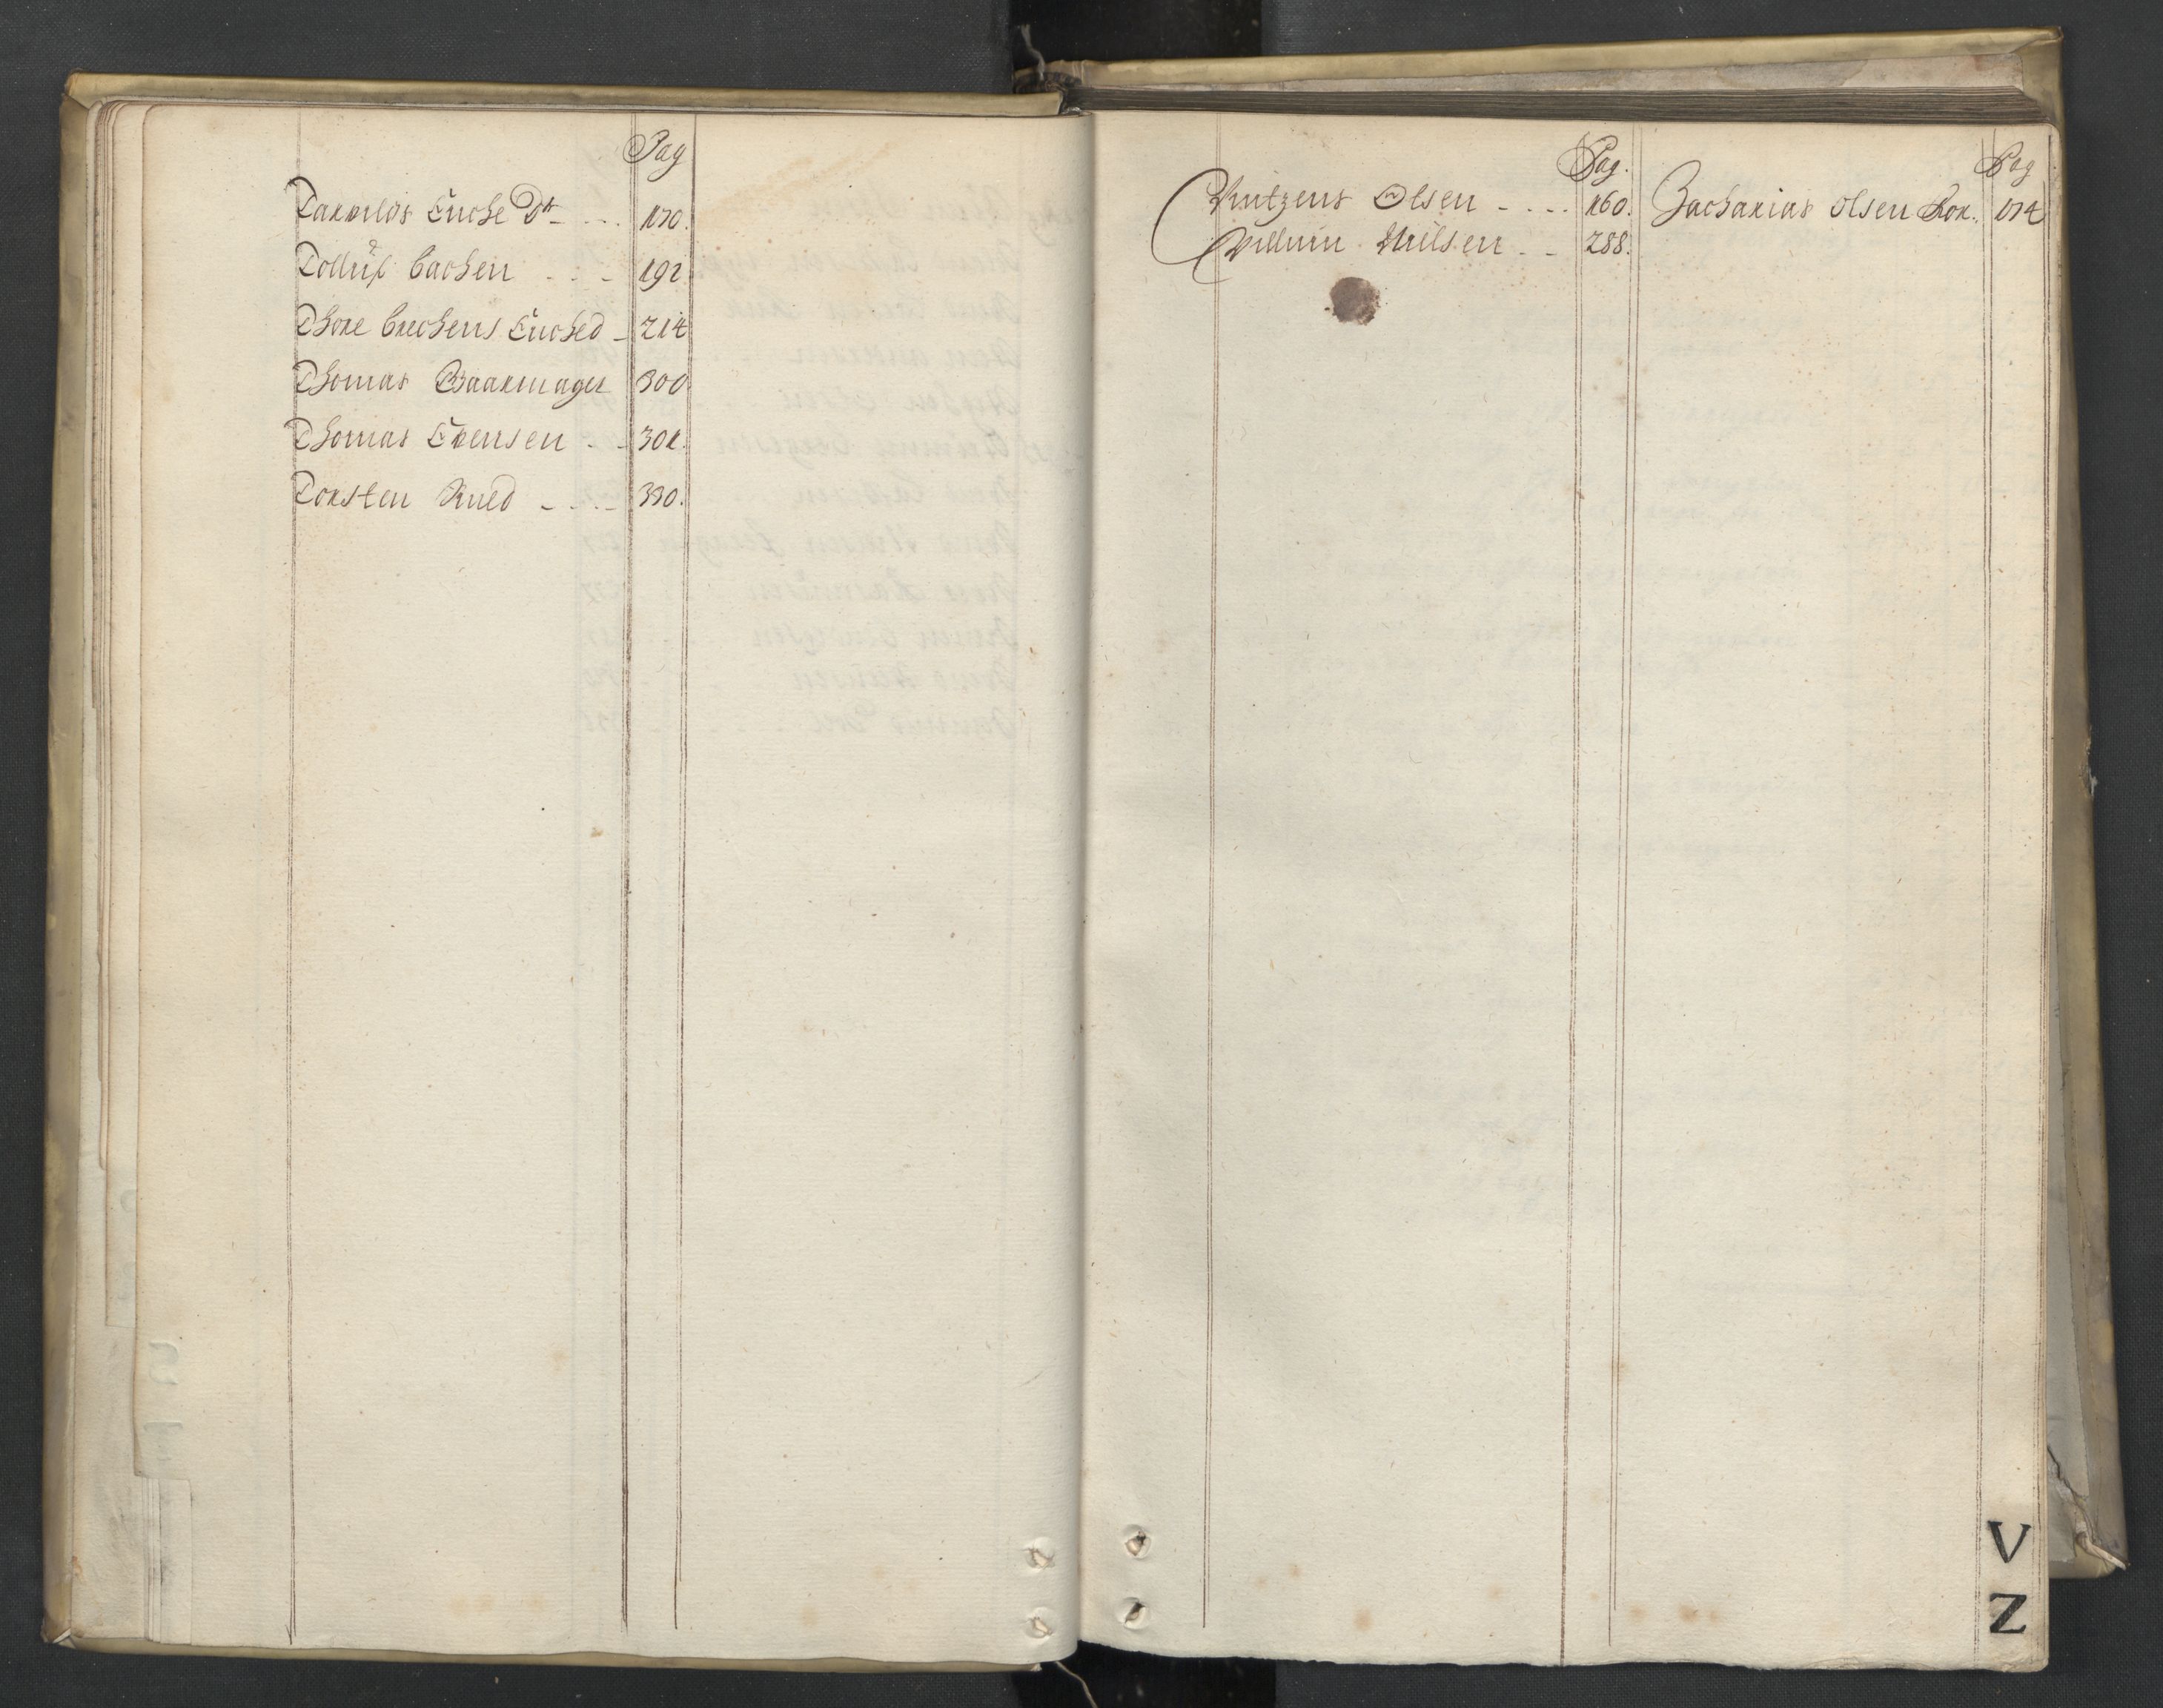 Pag
Tarvilds Encke Dr 170.
Tolluf Backen 192
Thore Brechens Encked 214
Thomas Baarmager 300
Thomas Evensen 301.
Torsten Rued 330.
Pag.
Vintzens Olsen 160.
Villum Nilsen 288.
Pag
Zacharias Olsen Kok. 174
V
Z